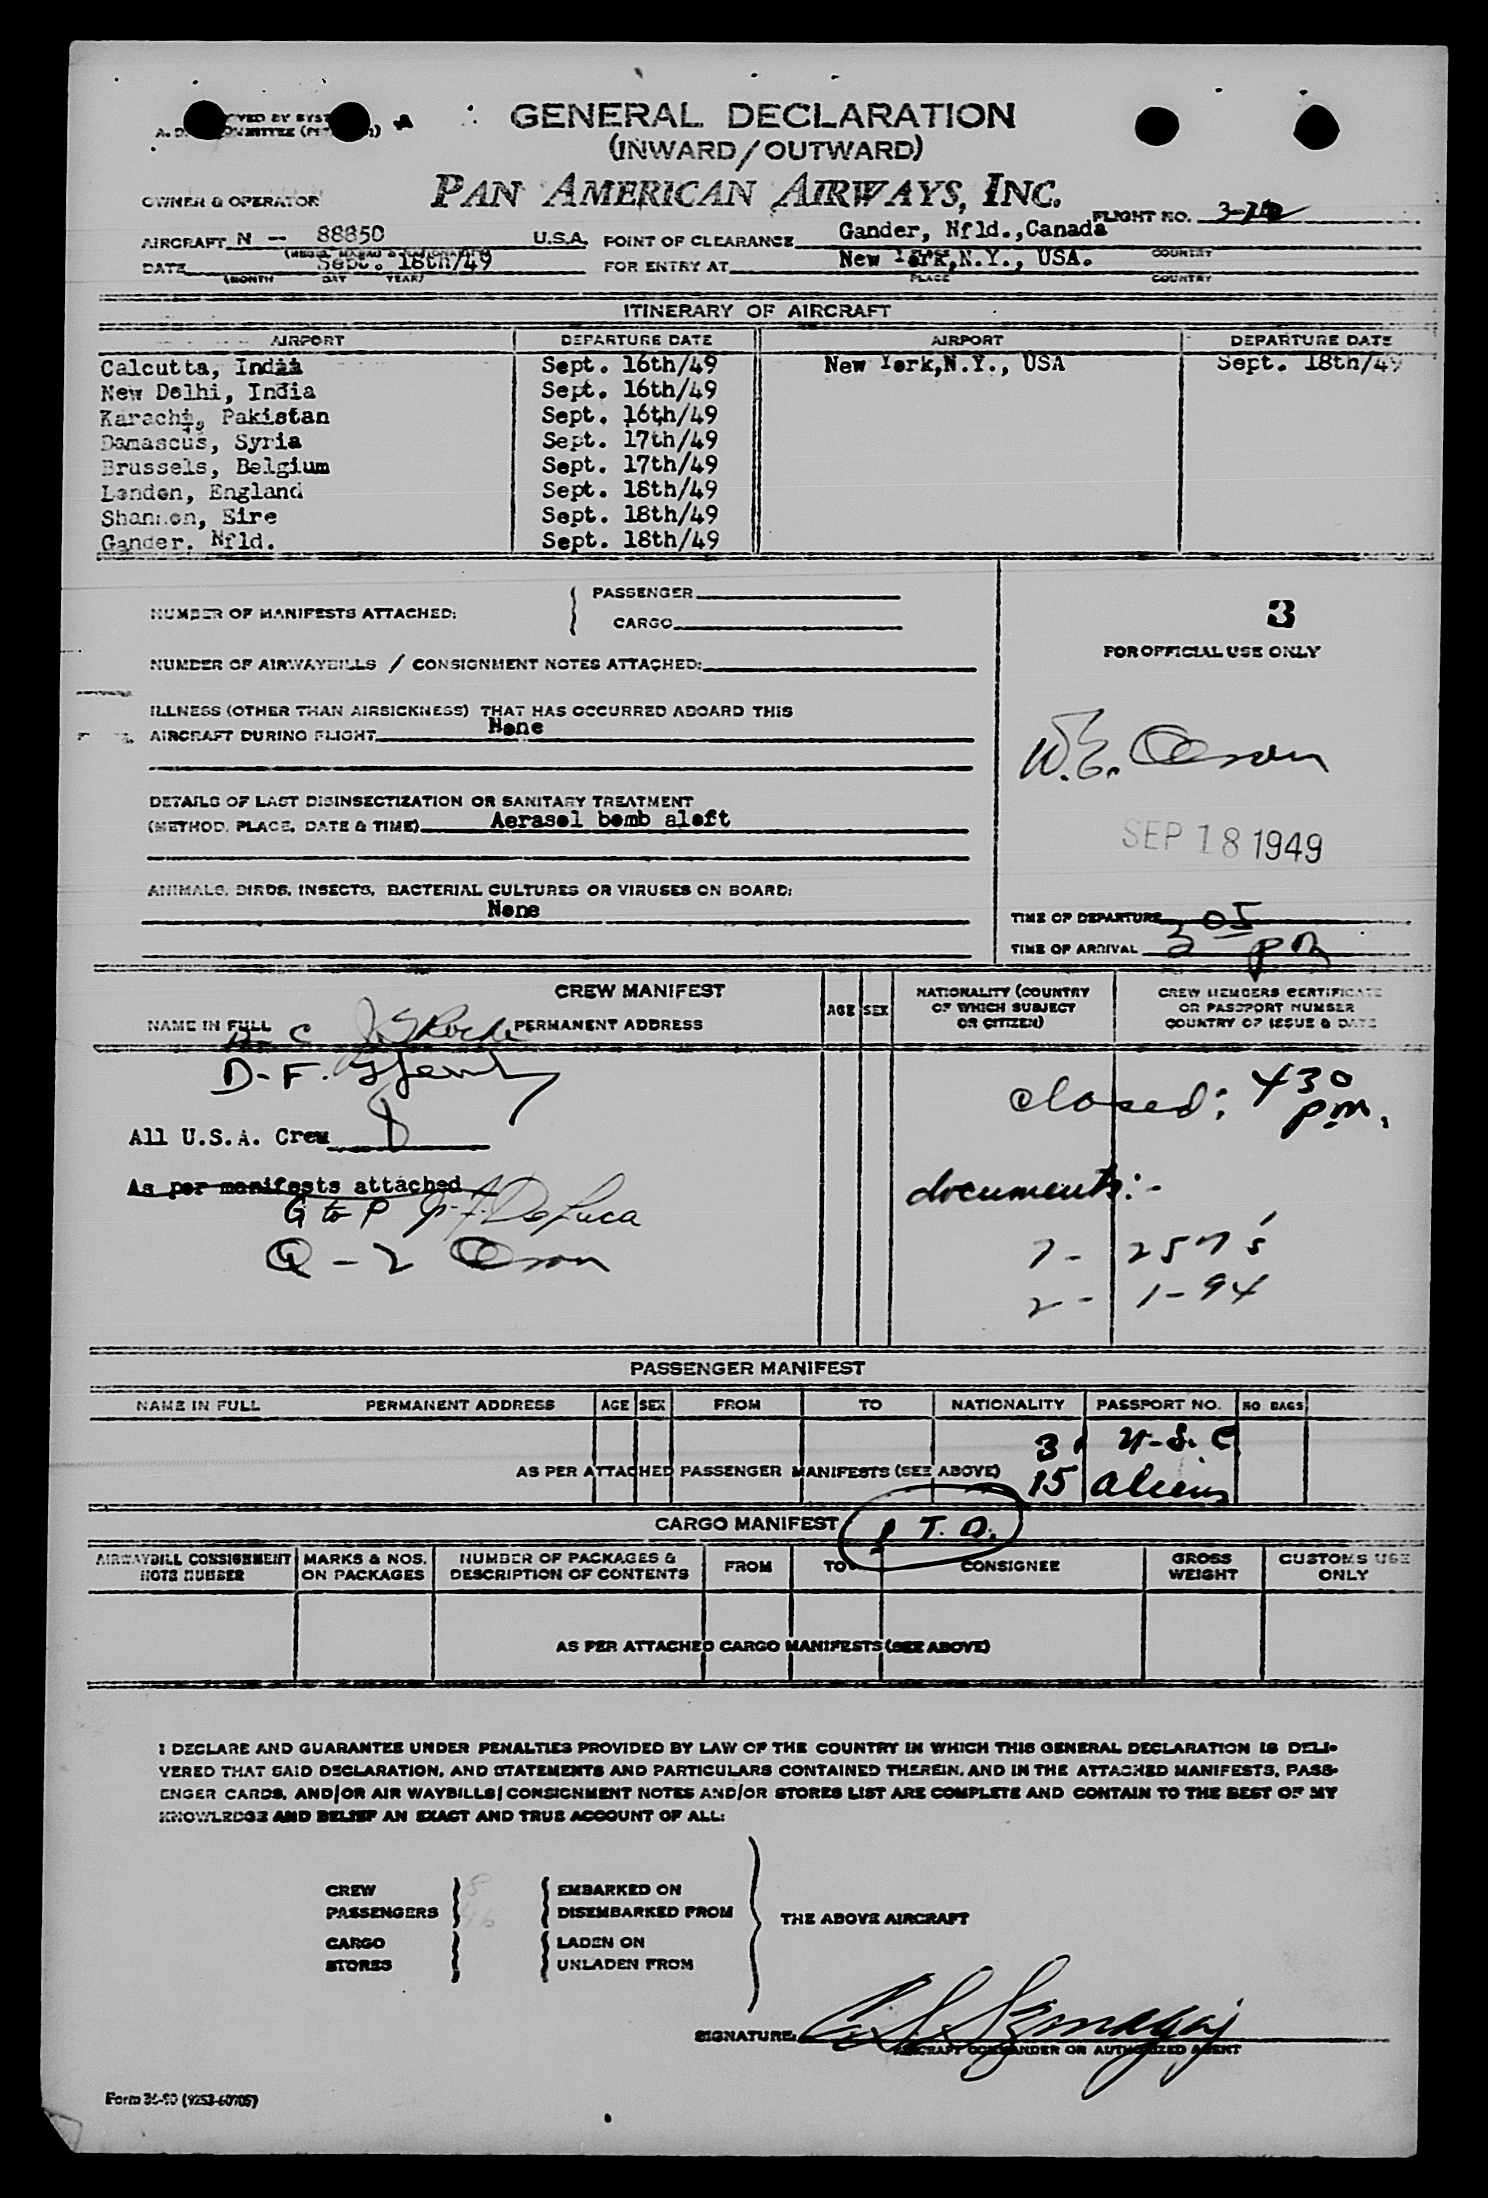 GENERAL DECLARATION
(INWARD/OUTWARD)
OWNER & OPERATOR PAN AMERICAN AIRWAYS, INC.
FLIGHT NO.
AIRCRAFT N -- 88850 U.S.A. POINT OF CLEARANCE Gander, Nfld.,Canada
COUNTRY
DATE Sept. 18th/49 FOR ENTRY AT New York,N.Y., USA.
(MONTH DAY YEAR) PLACE COUNTRY
ITINERARY OF AIRCRAFT
AIRPORT DEPARTURE DATE AIRPORT DEPARTURE DATE
Calcutta, India Sept. 16th/49 New York,N.Y., USA Sept. 18th/49
New Delhi, India Sept. 16th/49
Karachi, Pakistan Sept. 16th/49
Damascus, Syria Sept. 17th/49
Brussels, Belgium Sept. 17th/49
London, England Sept. 18th/49
Shannon, Eire Sept. 18th/49
Gander, Nfld. Sept. 18th/49
NUMBER OF MANIFESTS ATTACHED: PASSENGER
CARGO
3
FOR OFFICIAL USE ONLY
NUMBER OF AIRWAYBILLS / CONSIGNMENT NOTES ATTACHED:
ILLNESS (OTHER THAN AIRSICKNESS) THAT HAS OCCURRED ABOARD THIS
AIRCRAFT DURING FLIGHT None
W.E. Olson
DETAILS OF LAST DISINSECTIZATION OR SANITARY TREATMENT
(METHOD, PLACE, DATE & TIME) Aerosol bomb aloft
SEP 18 1949
ANIMALS, BIRDS, INSECTS, BACTERIAL CULTURES OR VIRUSES ON BOARD:
None
TIME OF DEPARTURE
TIME OF ARRIVAL 3 05 pm
CREW MANIFEST
NAME IN FULL PERMANENT ADDRESS AGE SEX NATIONALITY (COUNTRY OF WHICH SUBJECT OR CITIZEN) CREW MEMBERS CERTIFICATE OR PASSPORT NUMBER COUNTRY OF ISSUE & DATE
D-F.
closed: 430 pm.
All U.S.A. Crew
As per manifests attached
G to P J. F. DeLuca
documents:-
Q - 2 Olson
7 - 257's
2 - 1-94
PASSENGER MANIFEST
NAME IN FULL PERMANENT ADDRESS AGE SEX FROM TO NATIONALITY PASSPORT NO. NO BAGS
3 U.S.C.
AS PER ATTACHED PASSENGER MANIFESTS (SEE ABOVE) 15 aliens
CARGO MANIFEST P T.O.
AIRWAYBILL CONSIGNMENT NOTE NUMBER MARKS & NOS. ON PACKAGES NUMBER OF PACKAGES & DESCRIPTION OF CONTENTS FROM TO CONSIGNEE GROSS WEIGHT CUSTOMS USE ONLY
AS PER ATTACHED CARGO MANIFESTS (SEE ABOVE)
I DECLARE AND GUARANTEE UNDER PENALTIES PROVIDED BY LAW OF THE COUNTRY IN WHICH THIS GENERAL DECLARATION IS DELI-
VERED THAT SAID DECLARATION, AND STATEMENTS AND PARTICULARS CONTAINED THEREIN, AND IN THE ATTACHED MANIFESTS, PASS-
ENGER CARDS, AND/OR AIR WAYBILLS/CONSIGNMENT NOTES AND/OR STORES LIST ARE COMPLETE AND CONTAIN TO THE BEST OF MY
KNOWLEDGE AND BELIEF AN EXACT AND TRUE ACCOUNT OF ALL:
CREW 8 EMBARKED ON
PASSENGERS 46 DISEMBARKED FROM
THE ABOVE AIRCRAFT
CARGO LADEN ON
STORES UNLADEN FROM
SIGNATURE
AIRCRAFT COMMANDER OR AUTHORIZED AGENT